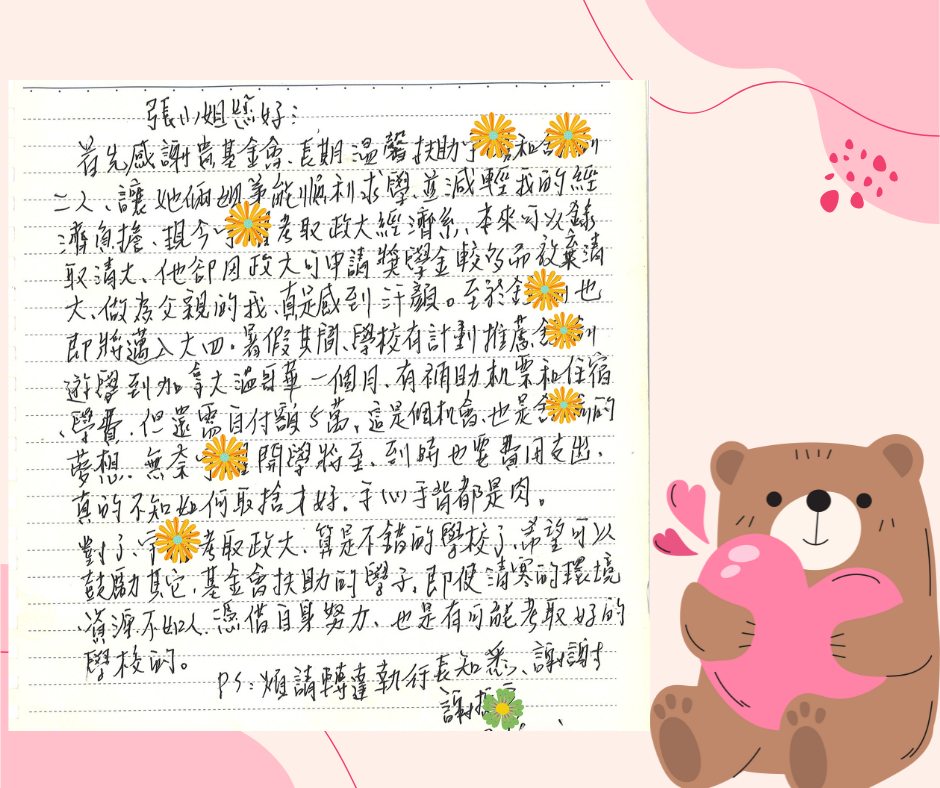 張小姐您好:
首先感謝貴基金會、長期溫馨扶助 和
二人、讓她倆姐弟能順利求學、並減輕我的經
濟負擔、現今 考取政大經濟系、本來可以錄
取清大、他卻因政大可申請獎學金較多而放棄清
大、做為父親的我、真是感到汗顏。至於 也
即將邁入大四。暑假其間、學校有計劃推薦
遊學到加拿大溫哥華一個月、有補助机票和住宿
、學費、但還需自付額5萬、這是個機會、也是 的
夢想、無奈 開學將至、到時也要費用支出、
真的不知如何取捨才好。手心手背都是肉。
對了、 考取政大、算是不錯的學校了、希望可以
鼓勵其它、基金會扶助的學子、即使清寒的環境
、資源不如人、憑借自身努力、也是有可能考取好的
學校的。
PS:煩請轉達執行長知悉、謝謝
謝